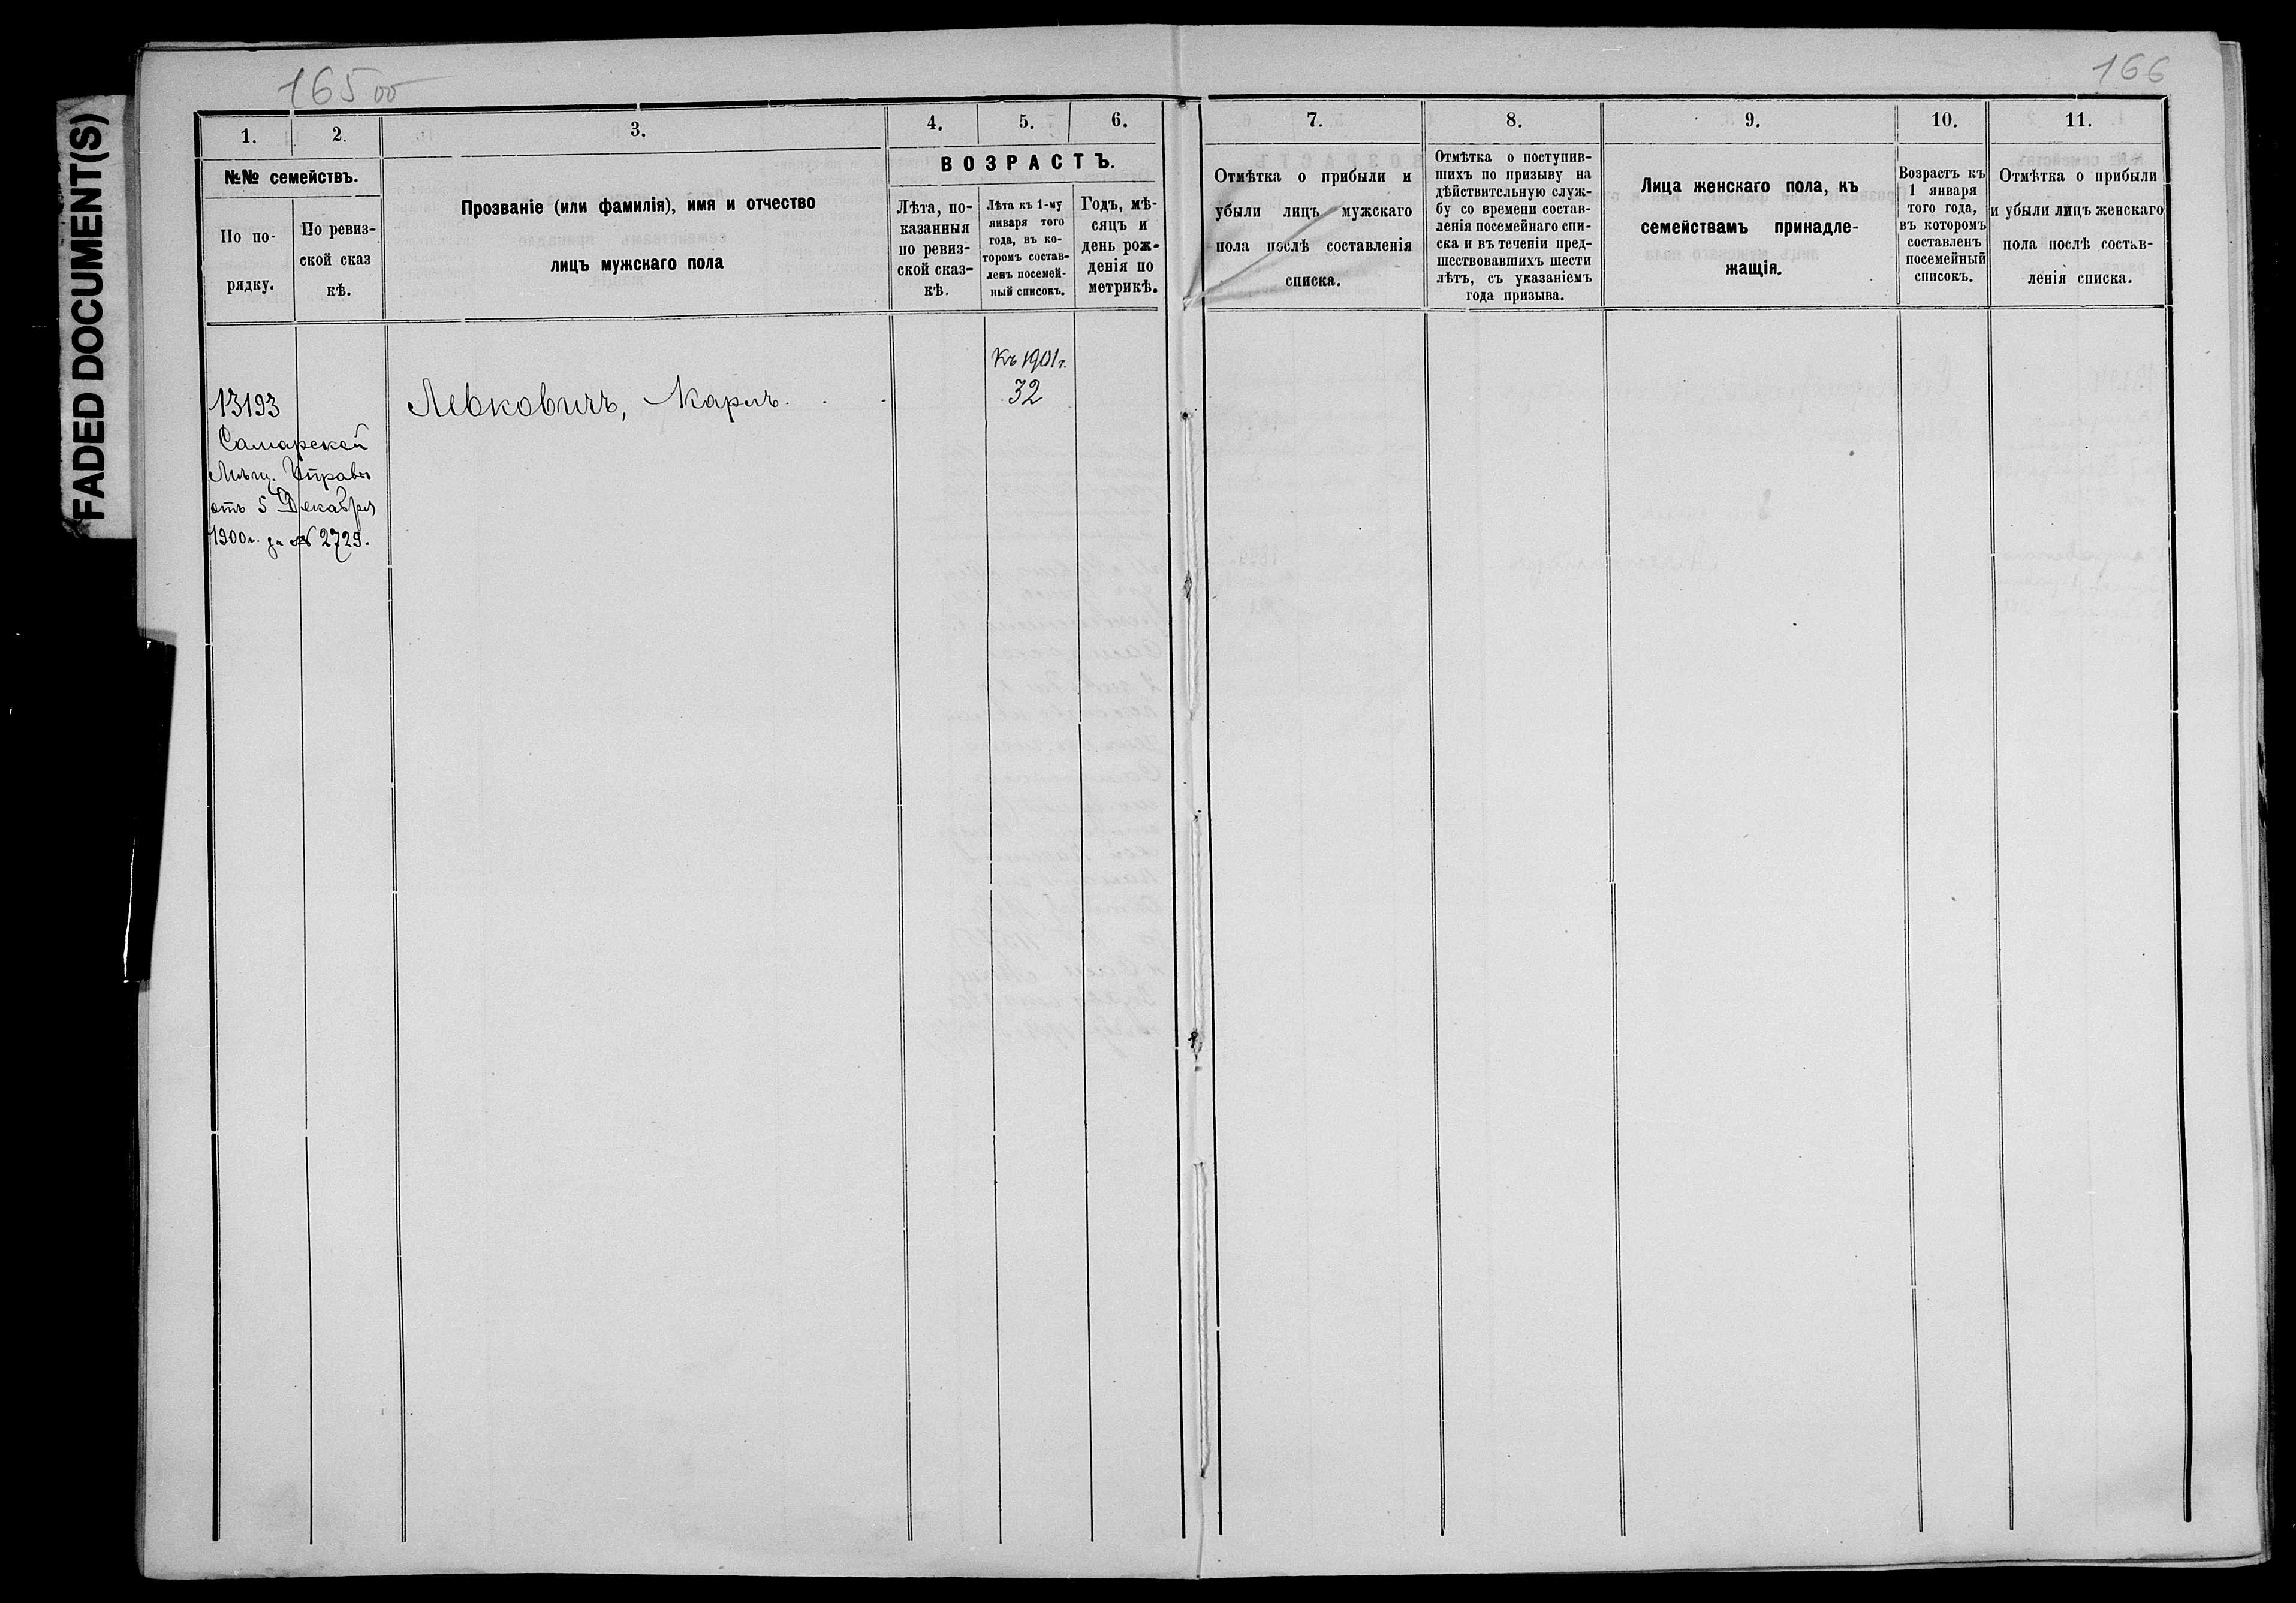 FADED DOCUMENT(S)
165 об
166
1. 2. 3. 4. 5. 6. 7. 8. 9. 10. 11.
№№ семействъ.
По по-
рядку.
По ревиз-
ской сказ
кѣ.
Прозваніе (или фамилія), имя и отчество
лицъ мужскаго пола
ВОЗРАСТЪ.
Лѣта, по-
казанныя
по ревиз-
ской сказ-
кѣ.
Лѣта къ 1-му
января того
года, въ ко-
торомъ состав-
ленъ посемей-
ный списокъ.
Годъ, мѣ-
сяцъ и
день рож-
денія по
метрикѣ.
Отмѣтка о прибыли и
убыли лицъ мужскаго
пола послѣ составленія
списка.
Отмѣтка о поступив-
шихъ по призыву на
дѣйствительную служ-
бу со времени состав-
ленія посемейнаго спи-
ска и въ теченіи пред-
шествовавшихъ шести
лѣтъ, съ указаніемъ
года призыва.
Лица женскаго пола, къ
семействамъ принадле-
жащія.
Возрастъ къ
1 января
того года,
въ которомъ
составленъ
посемейный
списокъ.
Отмѣтка о прибыли
и убыли лицъ женскаго
пола послѣ состав-
ленія списка.
13193
Самарской
Мѣщ. Управы
отъ 5 Декабря
1900 г. за № 2729.
Левковичъ, Карлъ.
Къ 1901 г.
32